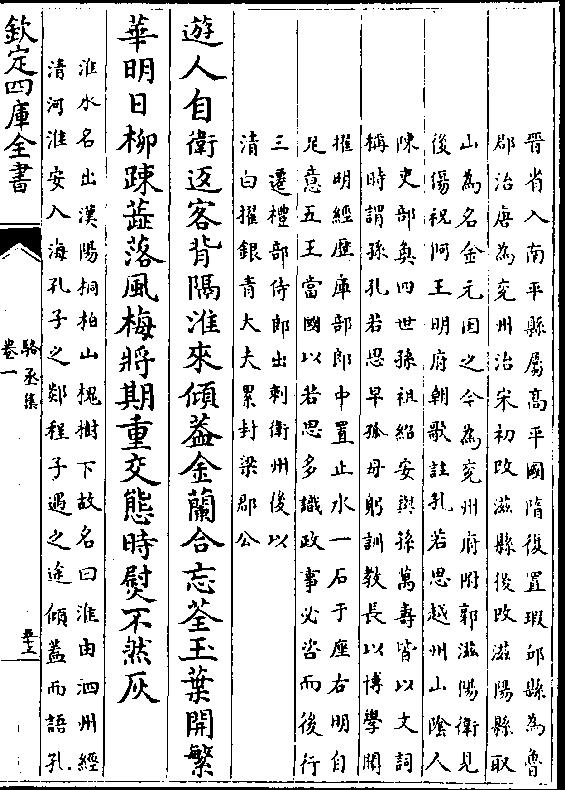 晉省入南平縣屬高平國隋復置瑕邱縣為魯
郡治唐為兖州治宋初改滋縣後改滋陽縣取
山為名金元因之今為兖州府附郭滋陽衛見
後傷祝阿王明府朝歌註孔若思越州山隂人
陳吏部奐四世孫祖紹安與孫萬夀皆以文詞
稱時謂孫孔若思早孤母躬訓教長以博學聞
擢明經歴庫部郎中置止水一石于座右明自
足意五王當國以若思多識政事必咨而後行
三遷禮部侍郎出刺衛州後以
清白擢銀青大夫累封梁郡公
遊人自衛返客背隔淮來傾葢金蘭合忘荃玉葉開繁
華明日柳踈蘂落風梅將期重交態時熨不然灰
淮水名出漢陽桐柏山槐樹下故名曰淮由泗州經
清河淮安入海孔子之郯程子遇之途傾葢而語孔
欽定四庫全書
駱丞集
卷一